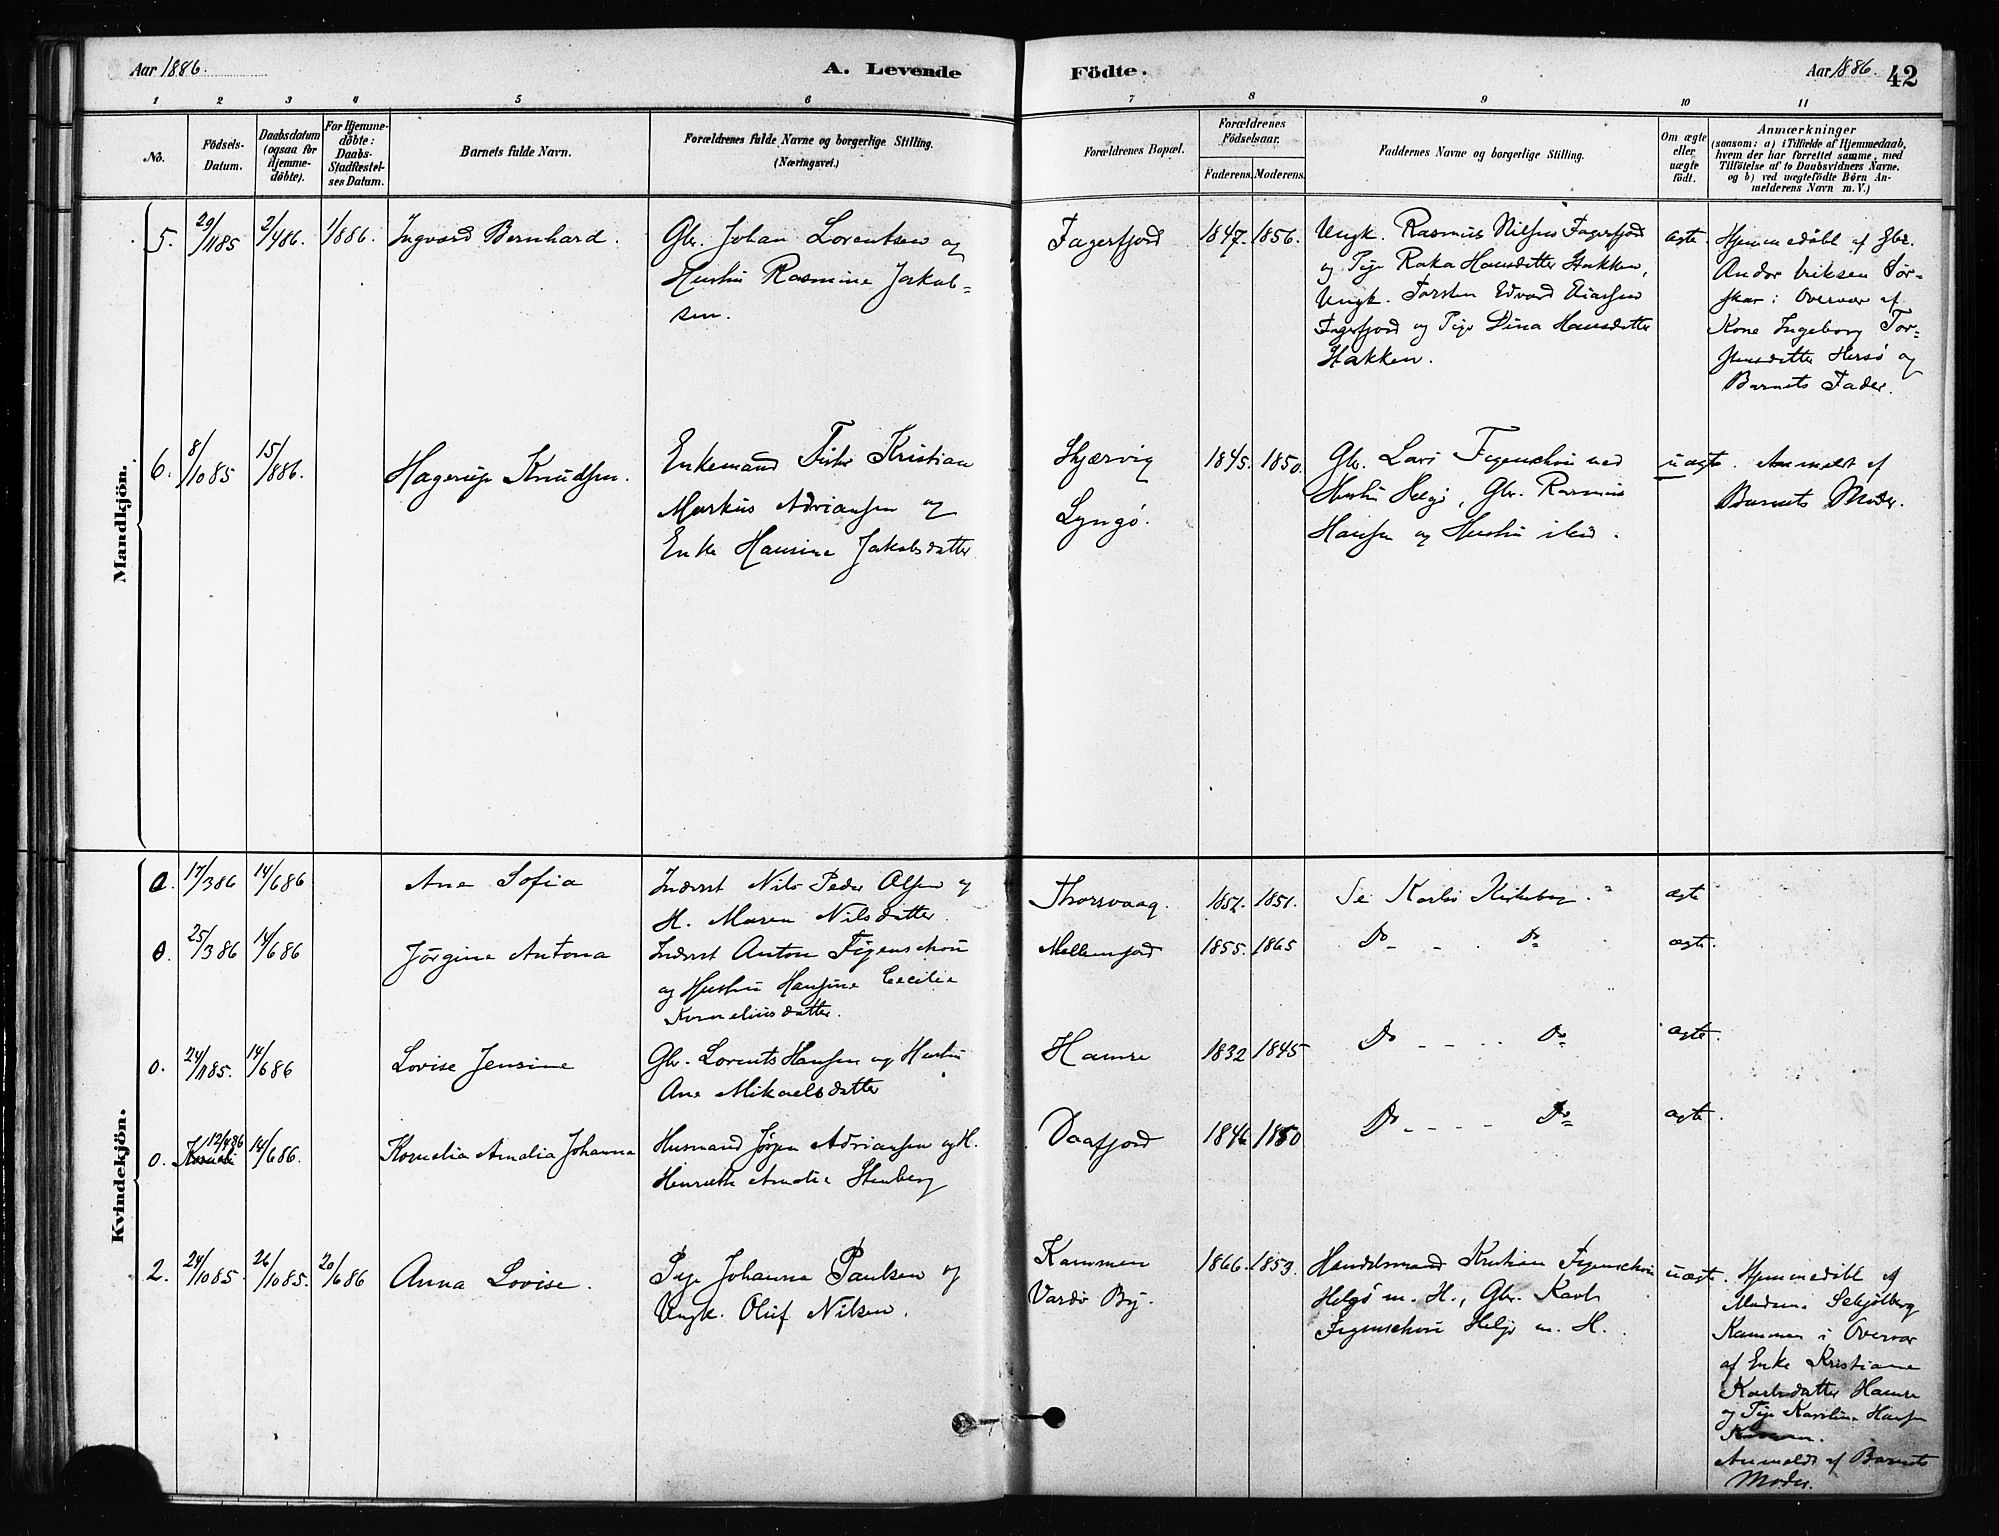 Aar 1886.
A. Levende
Födte.
Aar 1886. 42
1 2 3 4 5 6 7 8 9 10 11
No.
Födsels-
Datum.
Daabsdatum
(ogsaa for
Hjemme-
döbte).
For Hjemme-
döbte:
Daabs-
Stadfæstel-
ses Datum.
Barnets fulde Navn.
Forældrenes fulde Navne og borgerlige Stilling.
(Næringsvei.)
Forældrenes Bopæl.
Forældrenes
Födselsaar.
Faderens. Moderens.
Faddernes Navne og borgerlige Stilling.
Om ægte
eller
uægte
födt.
Anmærkninger
(saasom: a) i Tilfælde af Hjemmedaab,
hvem der har forrettet samme, med
Tilföielse af to Daabsvidners Navne.
og b) ved uægtefödte Börn An-
melderens Navn m. V.)
Mandkjön.
5. 29/1185 2/486. 1/886. Ingvard Bernhard.
Gbr. Johan Lorentsen og
Hustru Rasmine Jakob-
sen.
Fagerfjord 1847. 1856.
Ungk. Rasmus Nilsen Fagerfjord
og Pige Raka Hansdatter Hakken,
Ungk. Torsten Edvard Eliassen
Fagerfjord og Pige Dina Hansdatter
Hakken.
ægte.
Hjemmedöbt af Gbr.
Andor Eriksen Sör-
skar i Overvær af
Kone Ingeborg Tor-
stensdatter Hersö og
Barnets Fader.
6. 8/1085 15/886. Hagerup Knudsen.
Enkemand Fisker Kristian
Markus Adriansen og
Enke Hansine Jakobsdatter
Skjærvig
Lyngö.
1845. 1850.
Gbr. Lars Figenschou med
Hustru Helgö, Gbr. Rasmus
Hansen og Hustru ibid.
uægte. Anmeldt af
Barnets Moder.
Kvindekjön.
0. 17/386 14/686 Ane Sofia
Inderst Nils Peder Olsen og
H. Maren Nilsdatter.
Thorsvaag. 1851. 1851. Se Karlsö Kirkebog. ægte
0. 25/386 14/686 Jörgine Antona
Inderst Anton Figenschou
og Hustru Hansine Cecilie
Korneliusdatter.
Mellemfjord 1855. 1865 Do - - Do ægte.
0. 24/1185. 14/686 Lovise Jensine
Gbr. Lorents Hansen og Hustru
Ane Mikaelsdatter
Hamre 1832 1845 Do - - - Do ægte.
0. 12/486 14/686. Kornelia Amalia Johanna
Husmand Jörgen Adriansen og H.
Henriette Amalie Stenberg
Daafjord 1846 1850 Do - - - - Do ægte.
2. 24/1085. 26/1085. 20/686 Anna Lovise.
Pige Johanna Paulsen og
Ungk. Oluf Nilsen.
Kammen
Vardö By.
1866. 1853.
Handelsmand Kristian Figenschou
Helgö m. H., Gbr. Karl
Figenschou Helgö m. H.
uægte.
Hjemmedöbt af
Madam Schjölberg
Kammen i Overvær
af Enke Kristiane
Karlsdatter Hamre
og Pige Karoline Hansen
Kammen.
Anmeldt af Barnets
Moder.